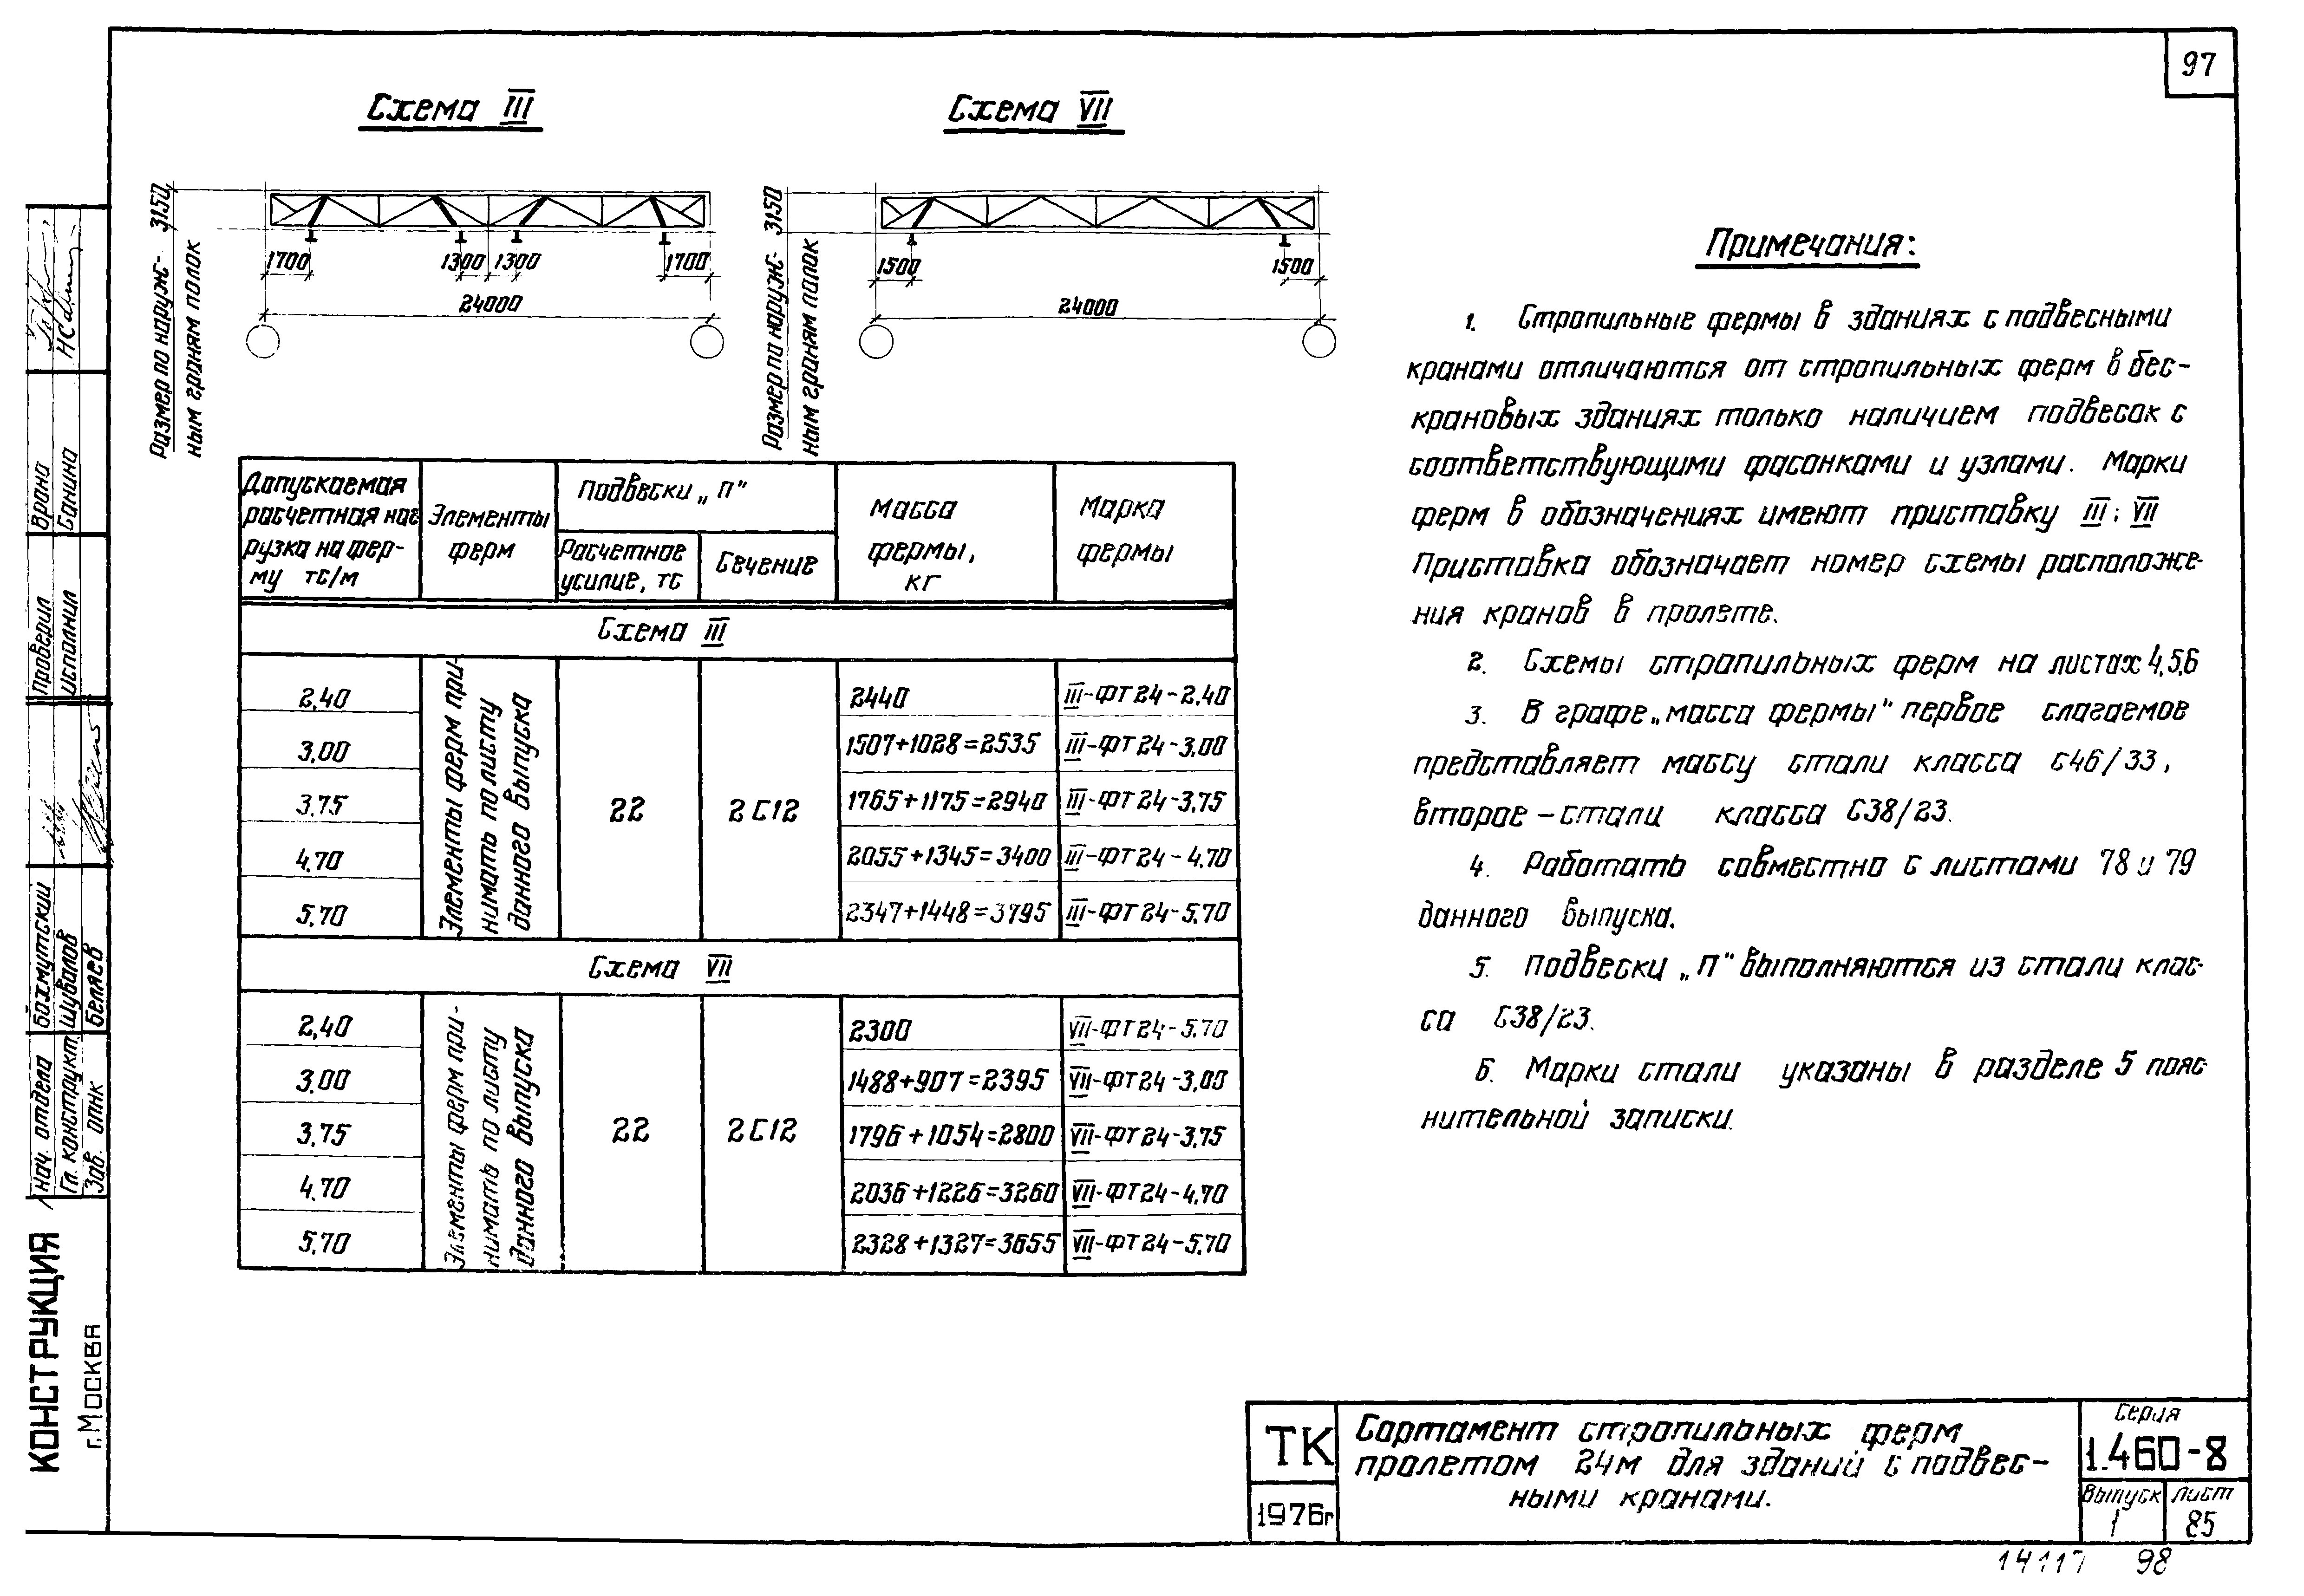 97
Схема III
Схема VII
3150
Размер по наруж-
ным граням полок
1700
1300
1300
1700
24000
3150
Размер по наруж-
ным граням полок
1500
1500
24000
Допускаемая
расчетная наг
рузка на фер-
му тс/м
Элементы
ферм
Подвески „П"
Расчетное
усилие, тс
Сечение
Масса
фермы,
кг
Марка
фермы
Схема III
Элементы ферм при-
нимать по листу
данного выпуска
22
2С12
2,40
2440
III-ФТ24-2,40
3,00
1507+1028=2535
III-ФТ24-3,00
3,75
1765+1175=2940
III-ФТ24-3,75
4,70
2055+1345=3400
III-ФТ24-4,70
5,70
2347+1448=3795
III-ФТ24-5,70
Схема VII
Элементы ферм при-
нимать по листу
данного выпуска
22
2С12
2,40
2300
VII-ФТ24-5,70
3,00
1488+907=2395
VII-ФТ24-3,00
3,75
1796+1054=2800
VII-ФТ24-3,75
4,70
2036+1226=3260
VII-ФТ24-4,70
5,70
2328+1327=3655
VII-ФТ24-5,70
Примечания:
1. Стропильные фермы в зданиях с подвесными
кранами отличаются от стропильных ферм в бес-
крановых зданиях только наличием подвесок с
соответствующими фасонками и узлами. Марки
ферм в обозначениях имеют приставку III; VII
Приставка обозначает номер схемы расположе-
ния кранов в пролете.
2. Схемы стропильных ферм на листах 4,5,6
3. В графе „масса фермы" первое слагаемое
представляет массу стали класса С46/33,
второе – стали класса С38/23.
4. Работать совместно с листами 78 и 79
данного выпуска.
5. Подвески „П" выполняются из стали клас-
са С38/23.
6. Марки стали указаны в разделе 5 пояс-
нительной записки.
ТК
1976г
Сортамент стропильных ферм
пролетом 24м для зданий с подвес-
ными кранами.
Серия
1.460-8
Выпуск
1
Лист
85
14117 98
Врана
Санина
Проверил
Исполнил
Бахмутский
Шувалов
Беляев
Нач. отдела
Гл. конструкт
Зав. ОПНК
КОНСТРУКЦИЯ
г. Москва